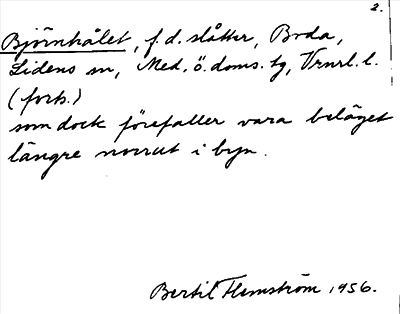 2.
Björnhålet, f.d. slåtter, Boda,
Lidens sn, Med. ö. doms. tg, Vrnrl. l.
(forts.)
som dock förefaller vara beläget
längre norrut i byn.
Bertil Flemström 1956.